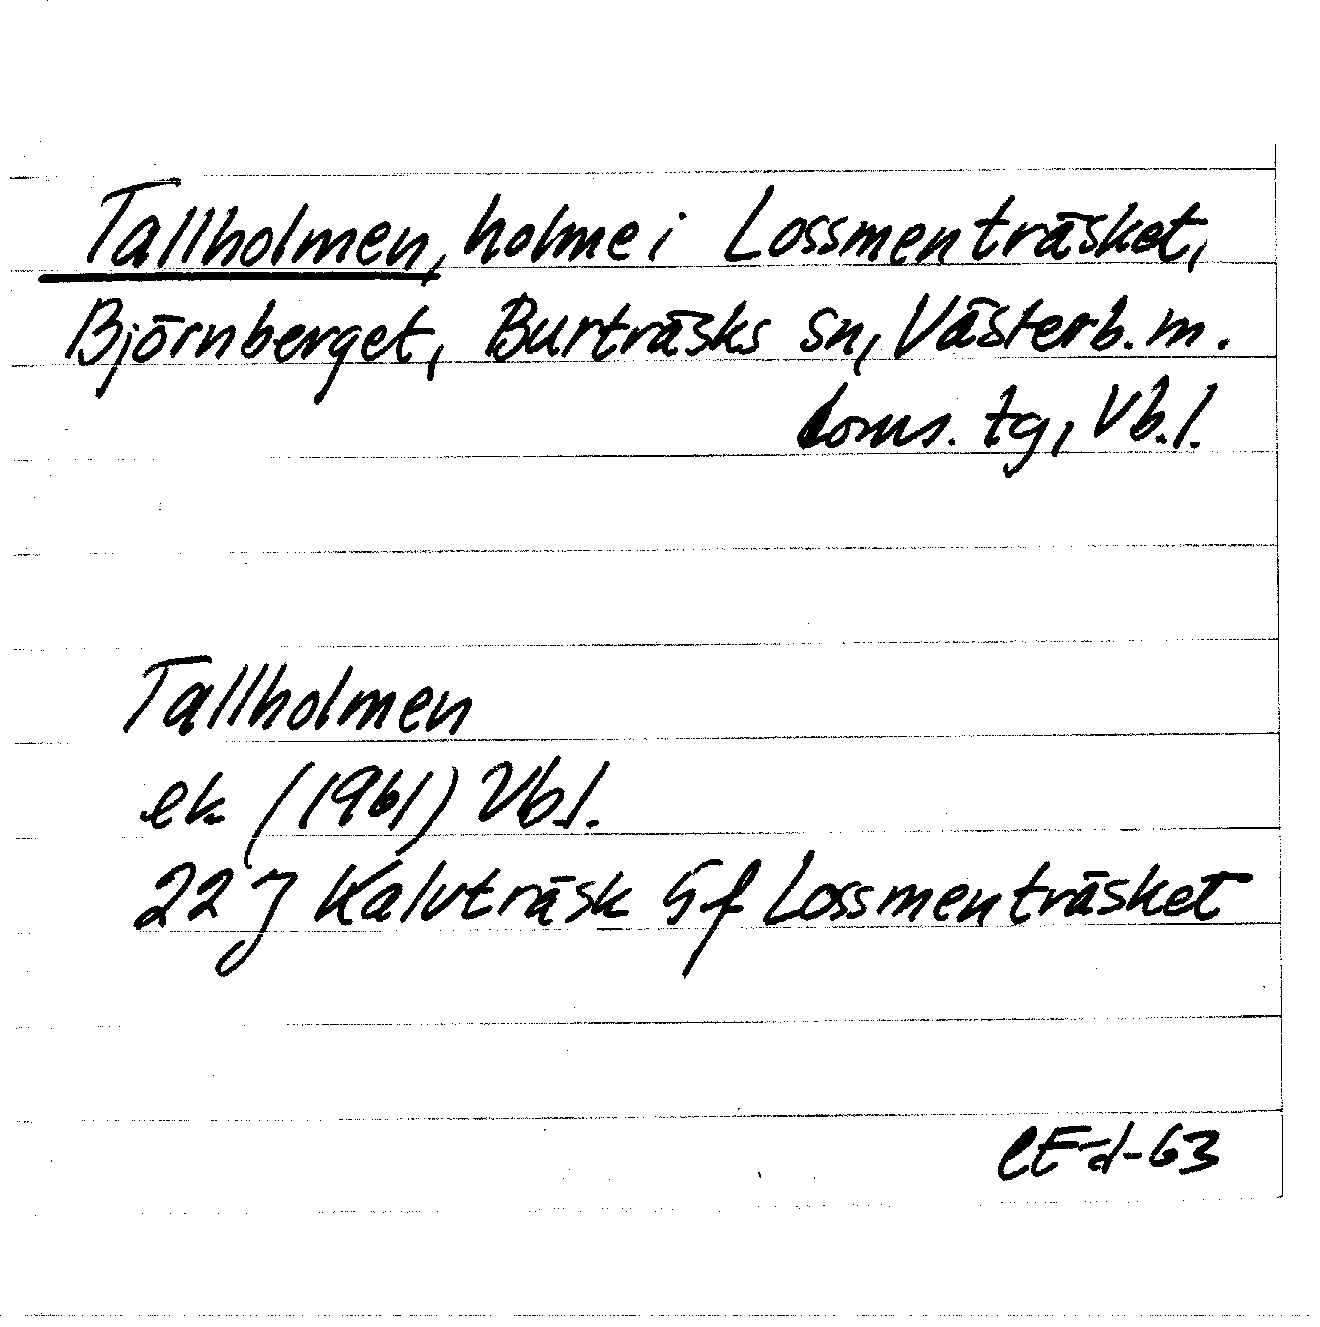 Tallholmen, holme i Lossmenträsket,
Björnberget, Burträsks sn, Västerb. m.
doms. tg, Vb.l.
Tallholmen
ek (1961) Vb.l.
22 J Kalvträsk 5 f Lossmenträsket
CEd-63